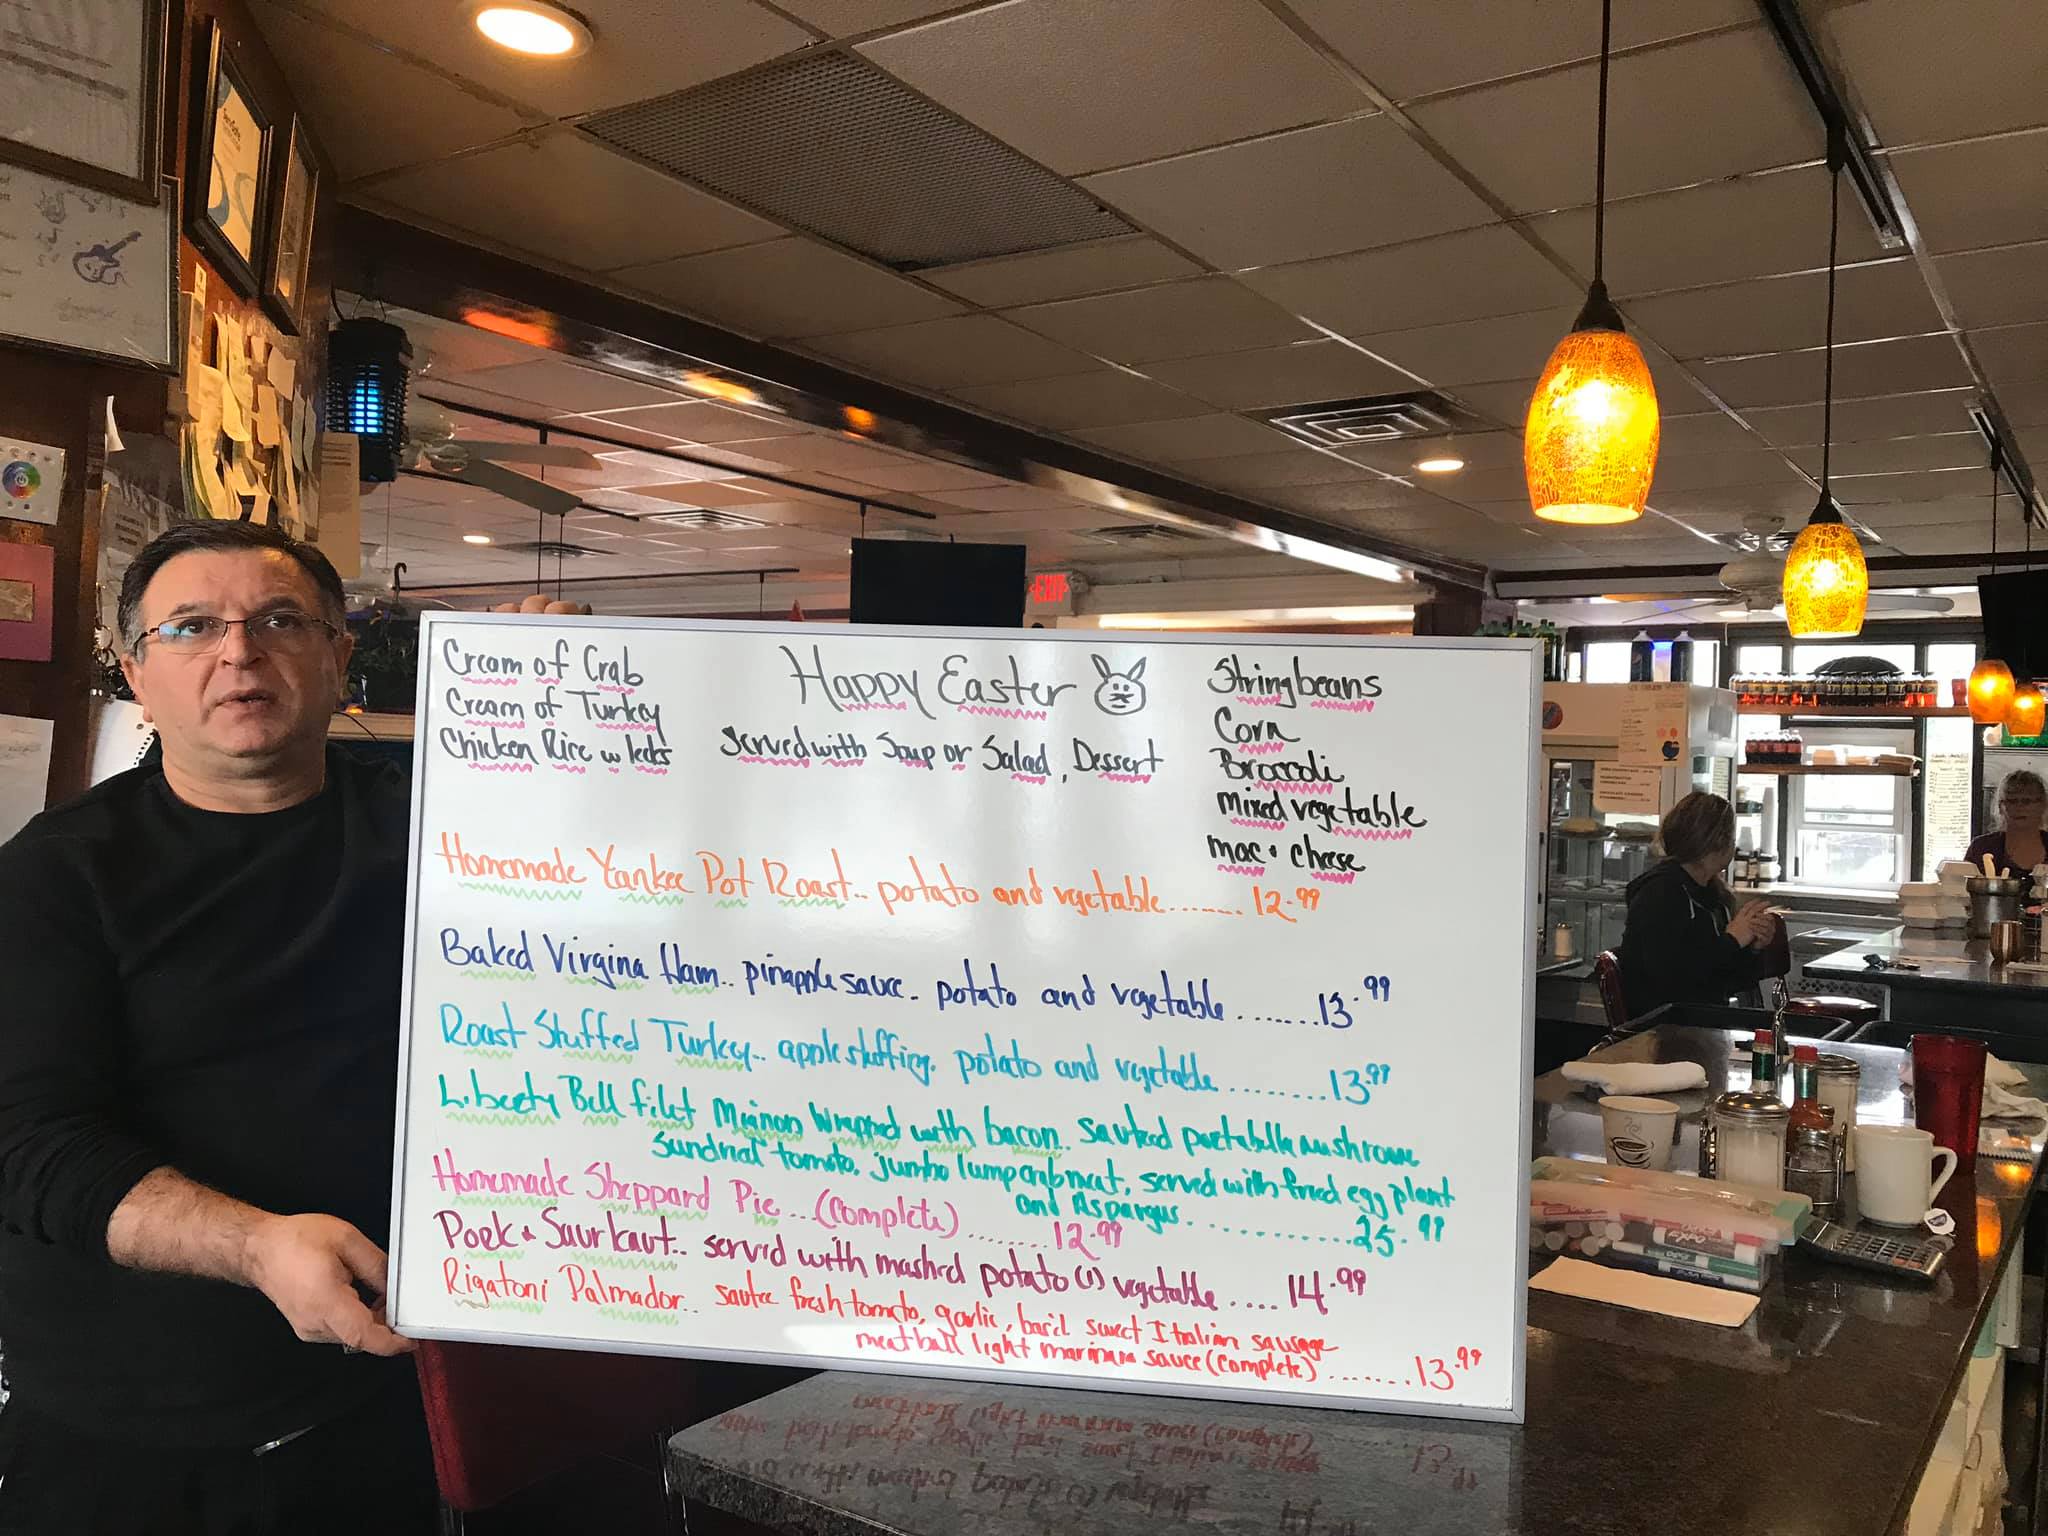 Cream of Crab
Cream of Turkey
Chicken Rice w leeks
Happy Easter
Served with Soup or Salad, Dessert
Stringbeans
Corn
Broccoli
mixed vegetable
mac + cheese
Homemade Yankee Pot Roast.. potato and vegetable........ 12.99
Baked Virgina Ham.. pinapple sauce. potato and vegetable ........13.99
Roast Stuffed Turkey.. apple stuffing. potato and vegetable .........13.99
Liberty Bell filet Mignon Wrapped with bacon.. Sauteed portabella mushroom
Sundrial tomato, jumbo lump crabmeat, served with fried egg plant
and Aspargus...........25.99
Homemade Sheppard Pie ...(Complete).........12.99
Pork + Saurkaut.. served with mashed potato (1) vegetable .... 14.99
Rigatoni Palmador.. sautee fresh tomato, garlic, basil sweet Italian sausage
meatball light marinara sauce (complete) ........13.99
EXIT